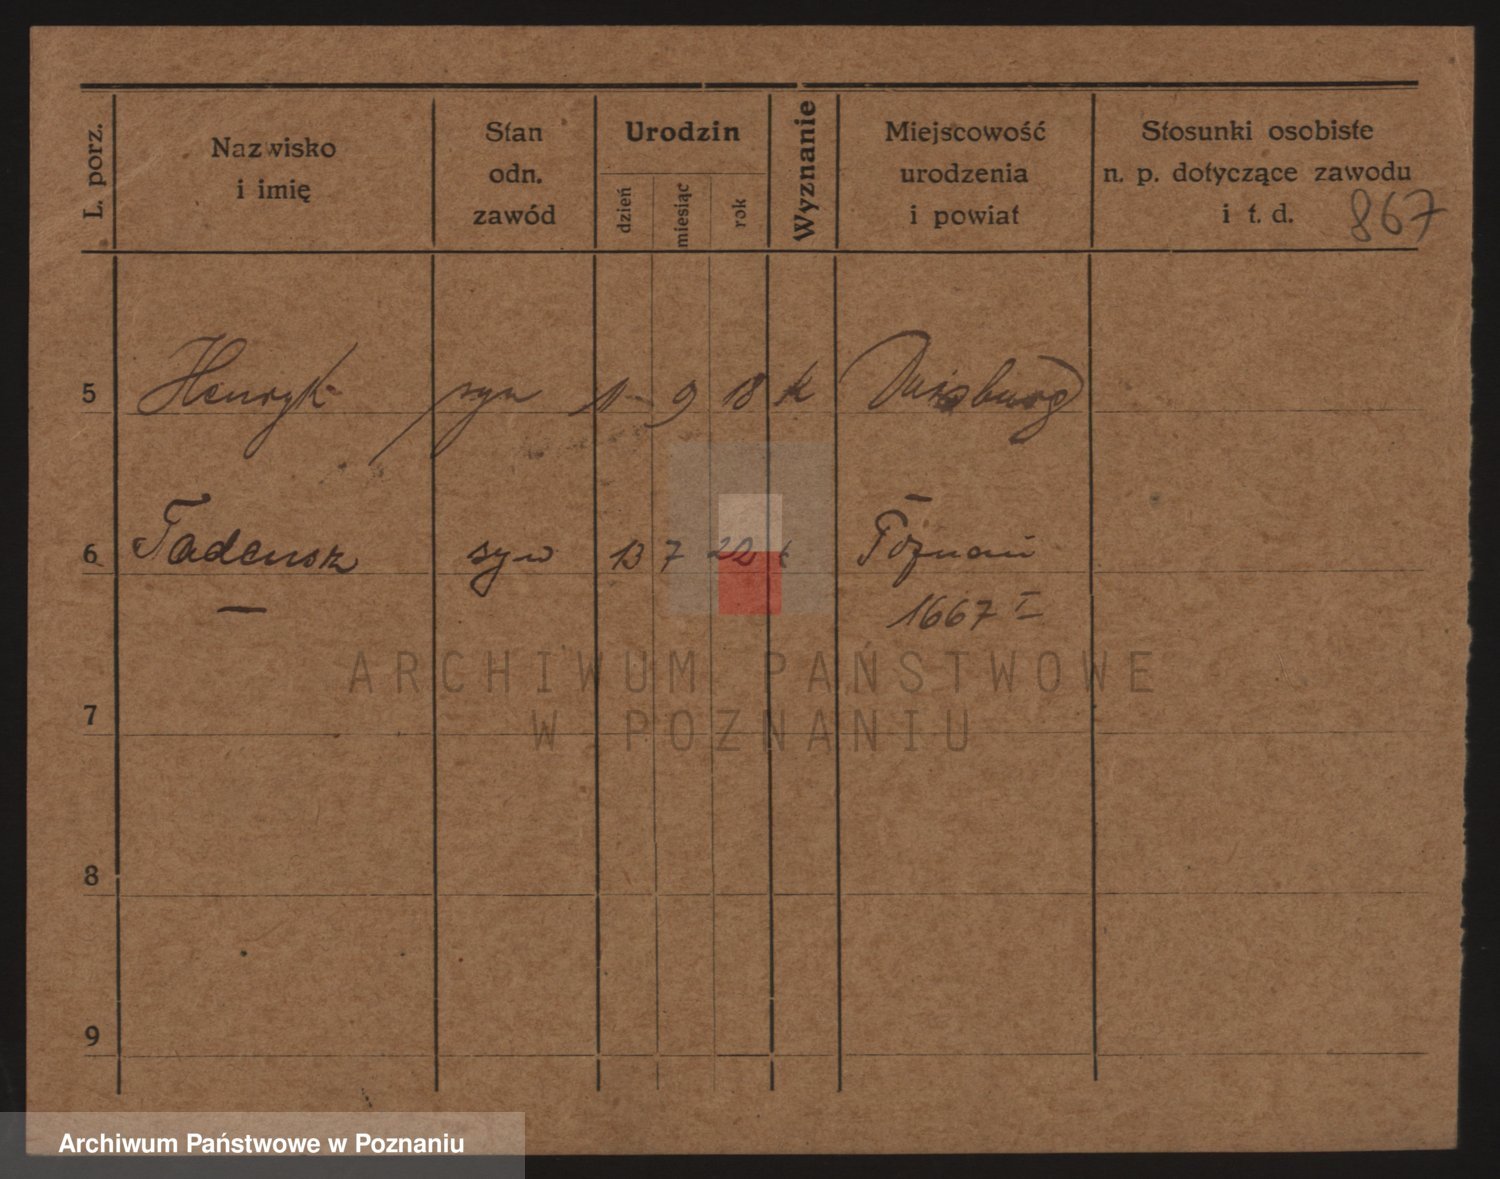 L. porz.
Nazwisko
i imię
Stan
odn.
zawód
Urodzin
dzień
miesiąc
rok
Wyznanie
Miejscowość
urodzenia
i powiat
Stosunki osobiste
n. p. dotyczące zawodu
i t. d.
867
5 Henryk syn 1 9 18 k Duisburg
6 Tadeusz syn 13 7 22 k Poznań
1667 I
7
8
9
ARCHIWUM PAŃSTWOWE
W POZNANIU
Archiwum Państwowe w Poznaniu